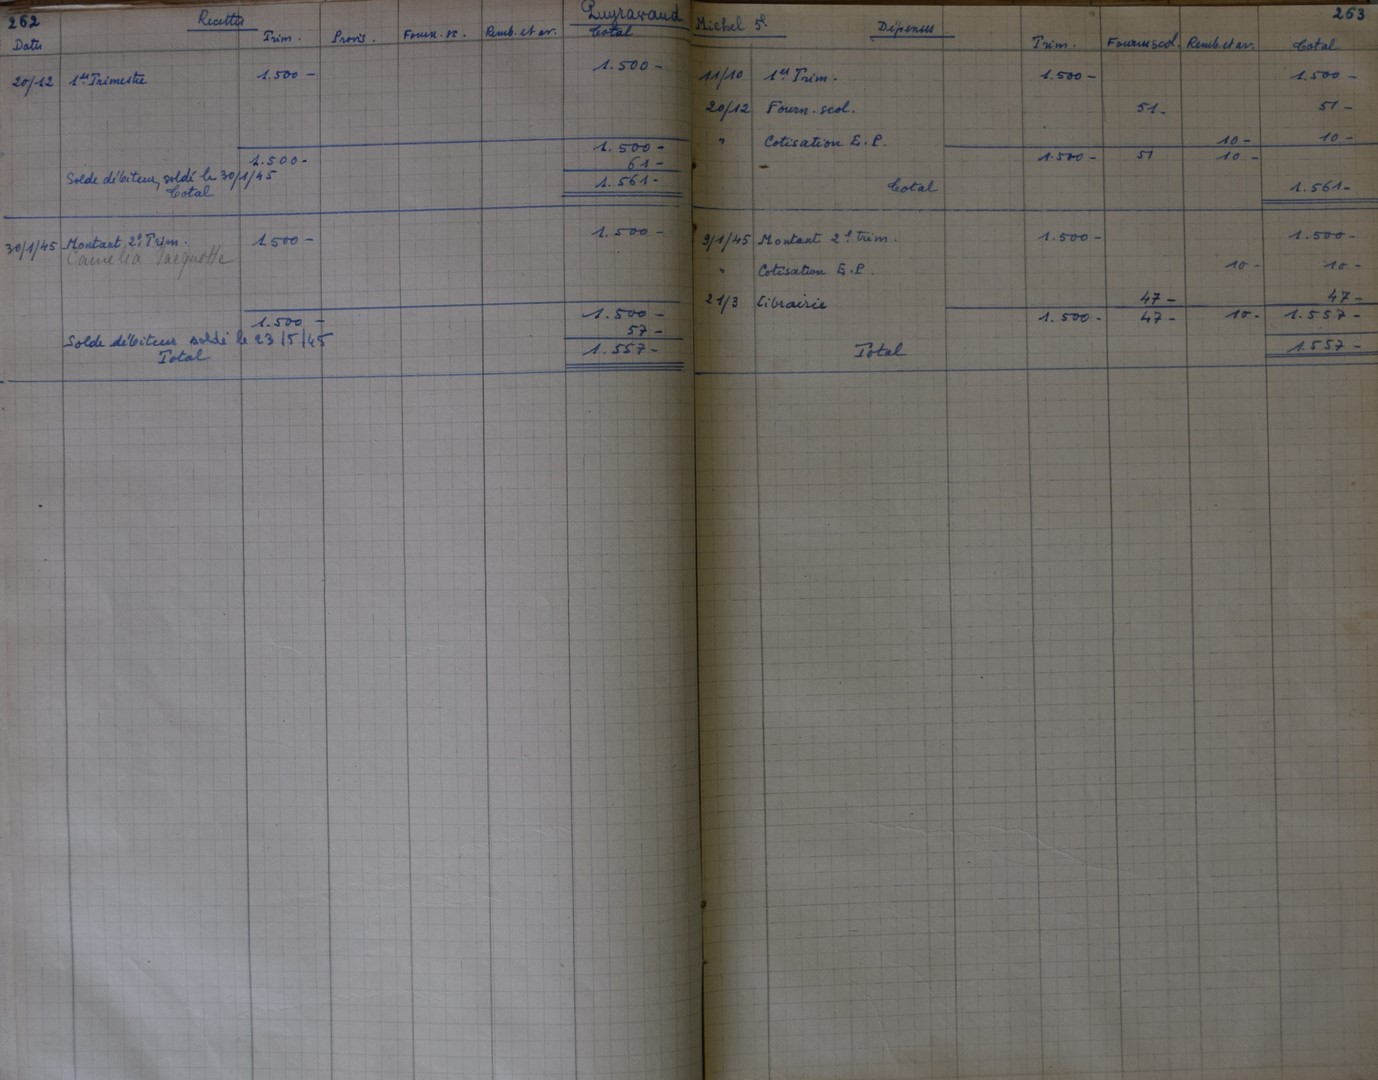 262 Recettes Puyravaud
Dates Trim. Provis. Fourn. sc. Remb. et av. Total
20/12 1er Trimestre 1.500 - 1.500 -
1.500 - 1.500 -
61 -
Solde débiteur, soldé le 30/1/45 1.561 -
Total
30/1/45 Montant 2e Trim. 1.500 - 1.500 -
1.500 - 1.500 -
57 -
Solde débiteur soldé le 23/5/45
Total 1.557 -
Michel 5e Dépenses 263
Trim. Fourn scol. Remb. et av. Total
11/10 1er Trim. 1.500 - 1.500 -
20/12 Fourn. scol. 51 - 51 -
" Cotisation E.P. 10 - 10 -
1.500 - 51 10 -
Total 1.561 -
9/1/45 Montant 2e trim. 1.500 - 1.500 -
" Cotisation E.P. 10 - 10 -
21/3 Librairie 47 - 47 -
1.500 - 47 - 10 - 1.557 -
Total 1.557 -